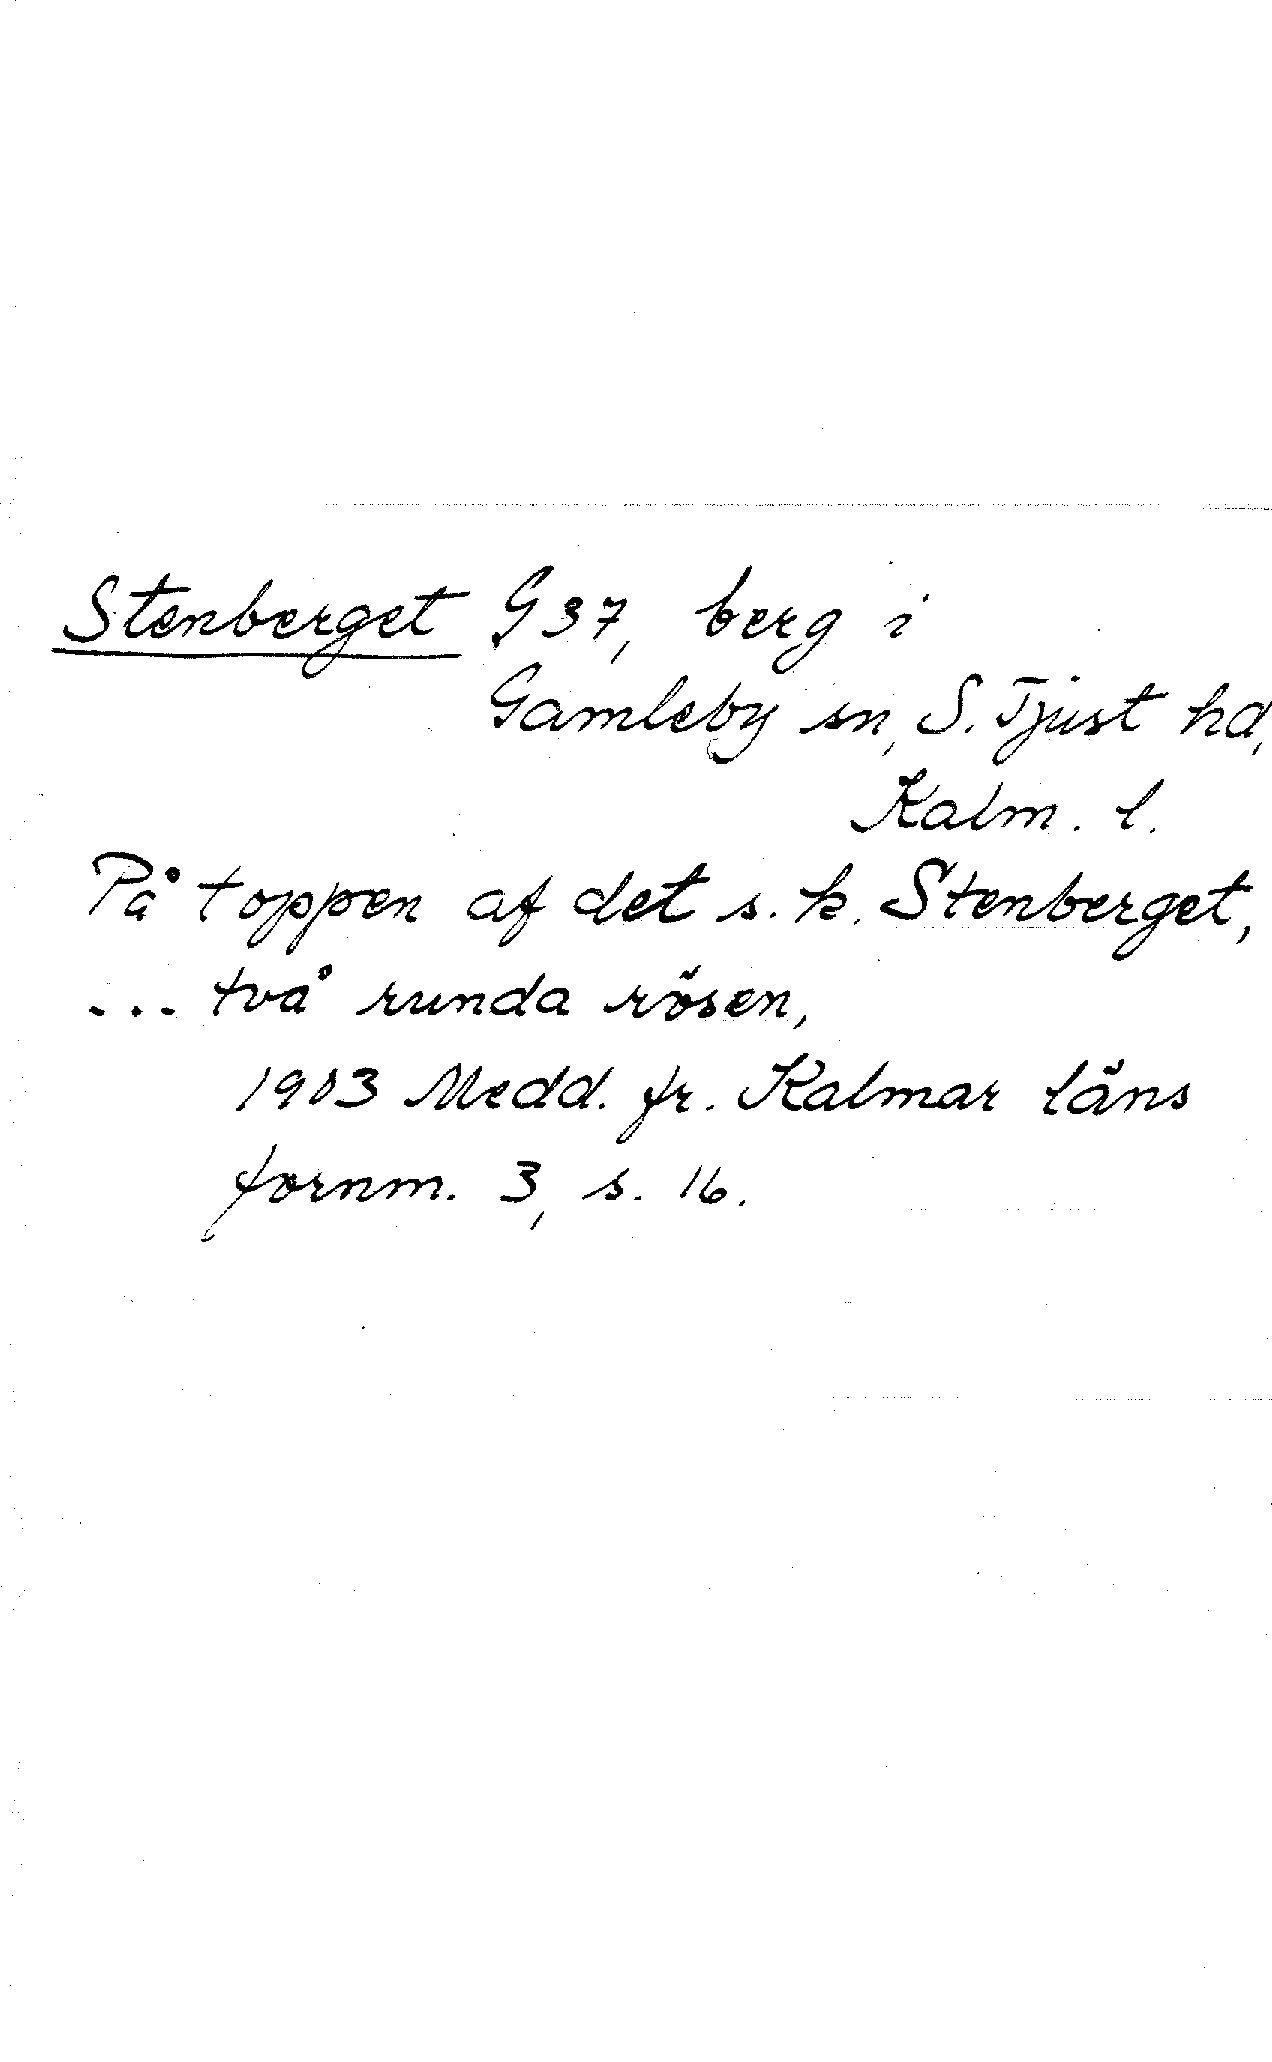 Stenberget G 37, berg i
Gamleby sn, S. Tjust hd,
Kalm. l.
På toppen af det s.k. Stenberget,
... två runda rösen,
1903 Medd. fr. Kalmar läns
fornm. 3, s. 16.